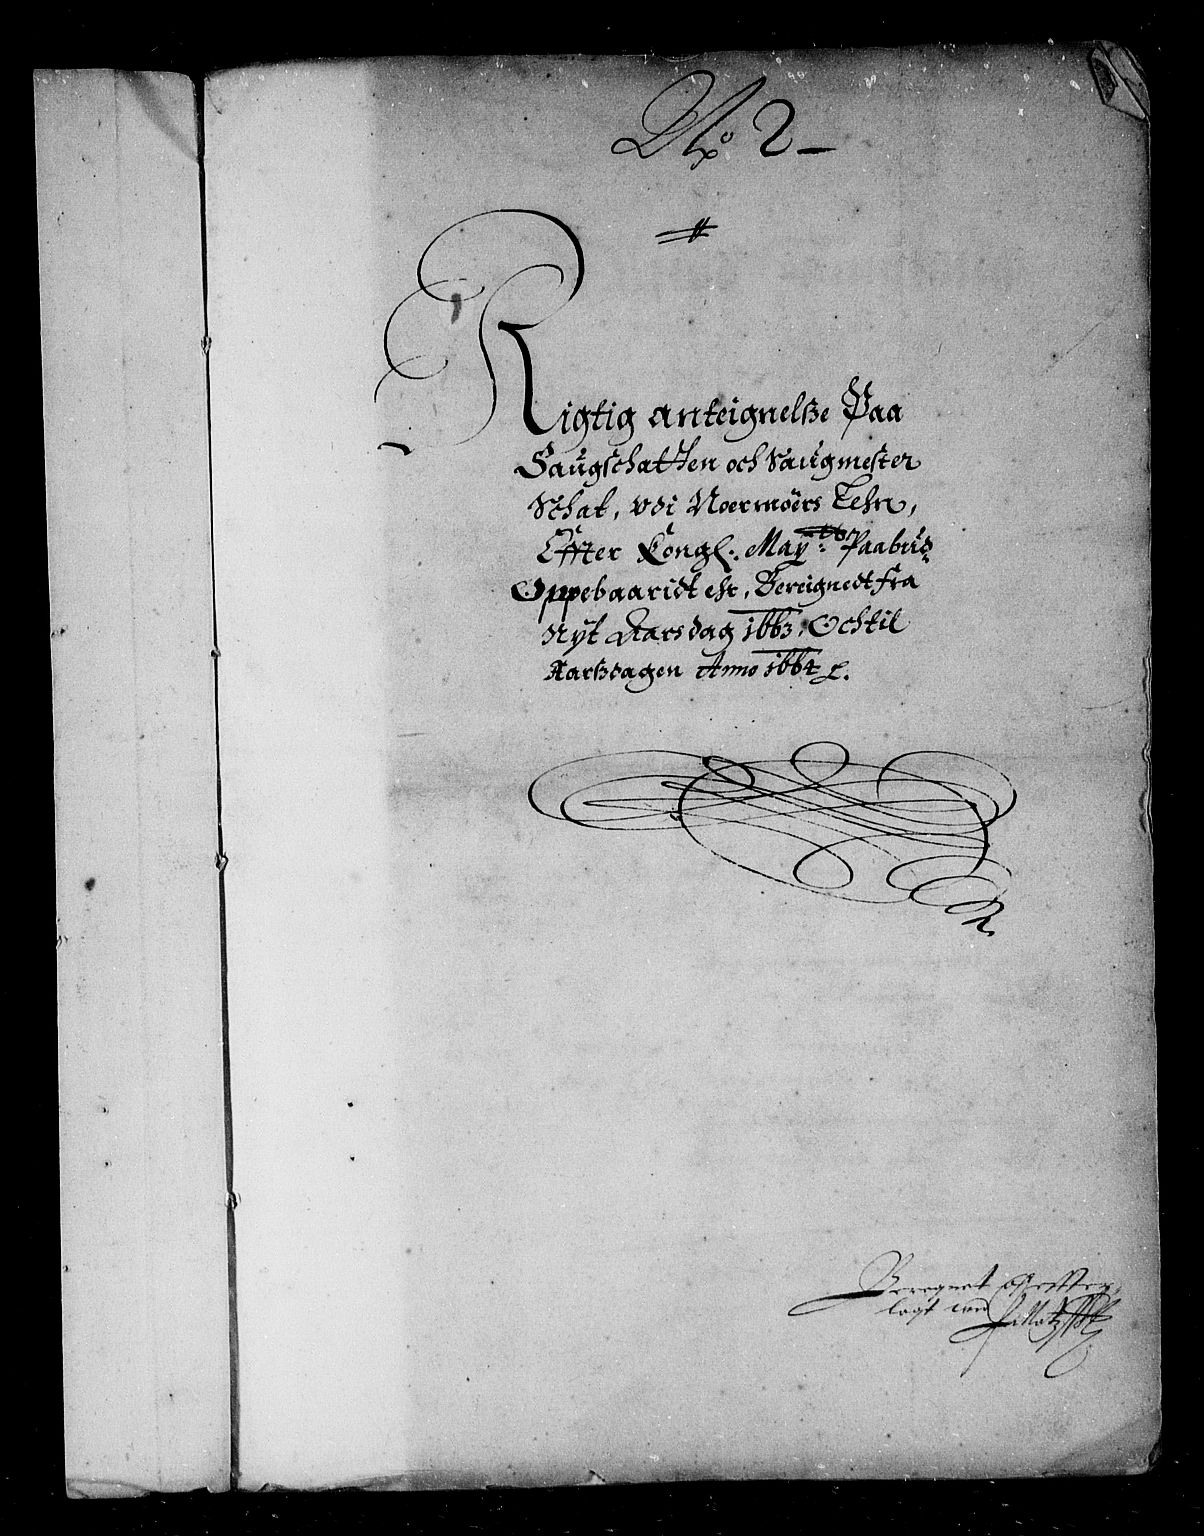 No 2
Rigtig anteignelsse Paa
Saugschatten och Saugmester
Schat, vdi Noermøers Lehn,
Effter Kongl: May:tts Paabud
Oppebaaridt ehr, Bereignedt fra
Nyt Aarsdag 1663, Och til
Aarssdagen Anno 1664
Beregnet och effter
lagt